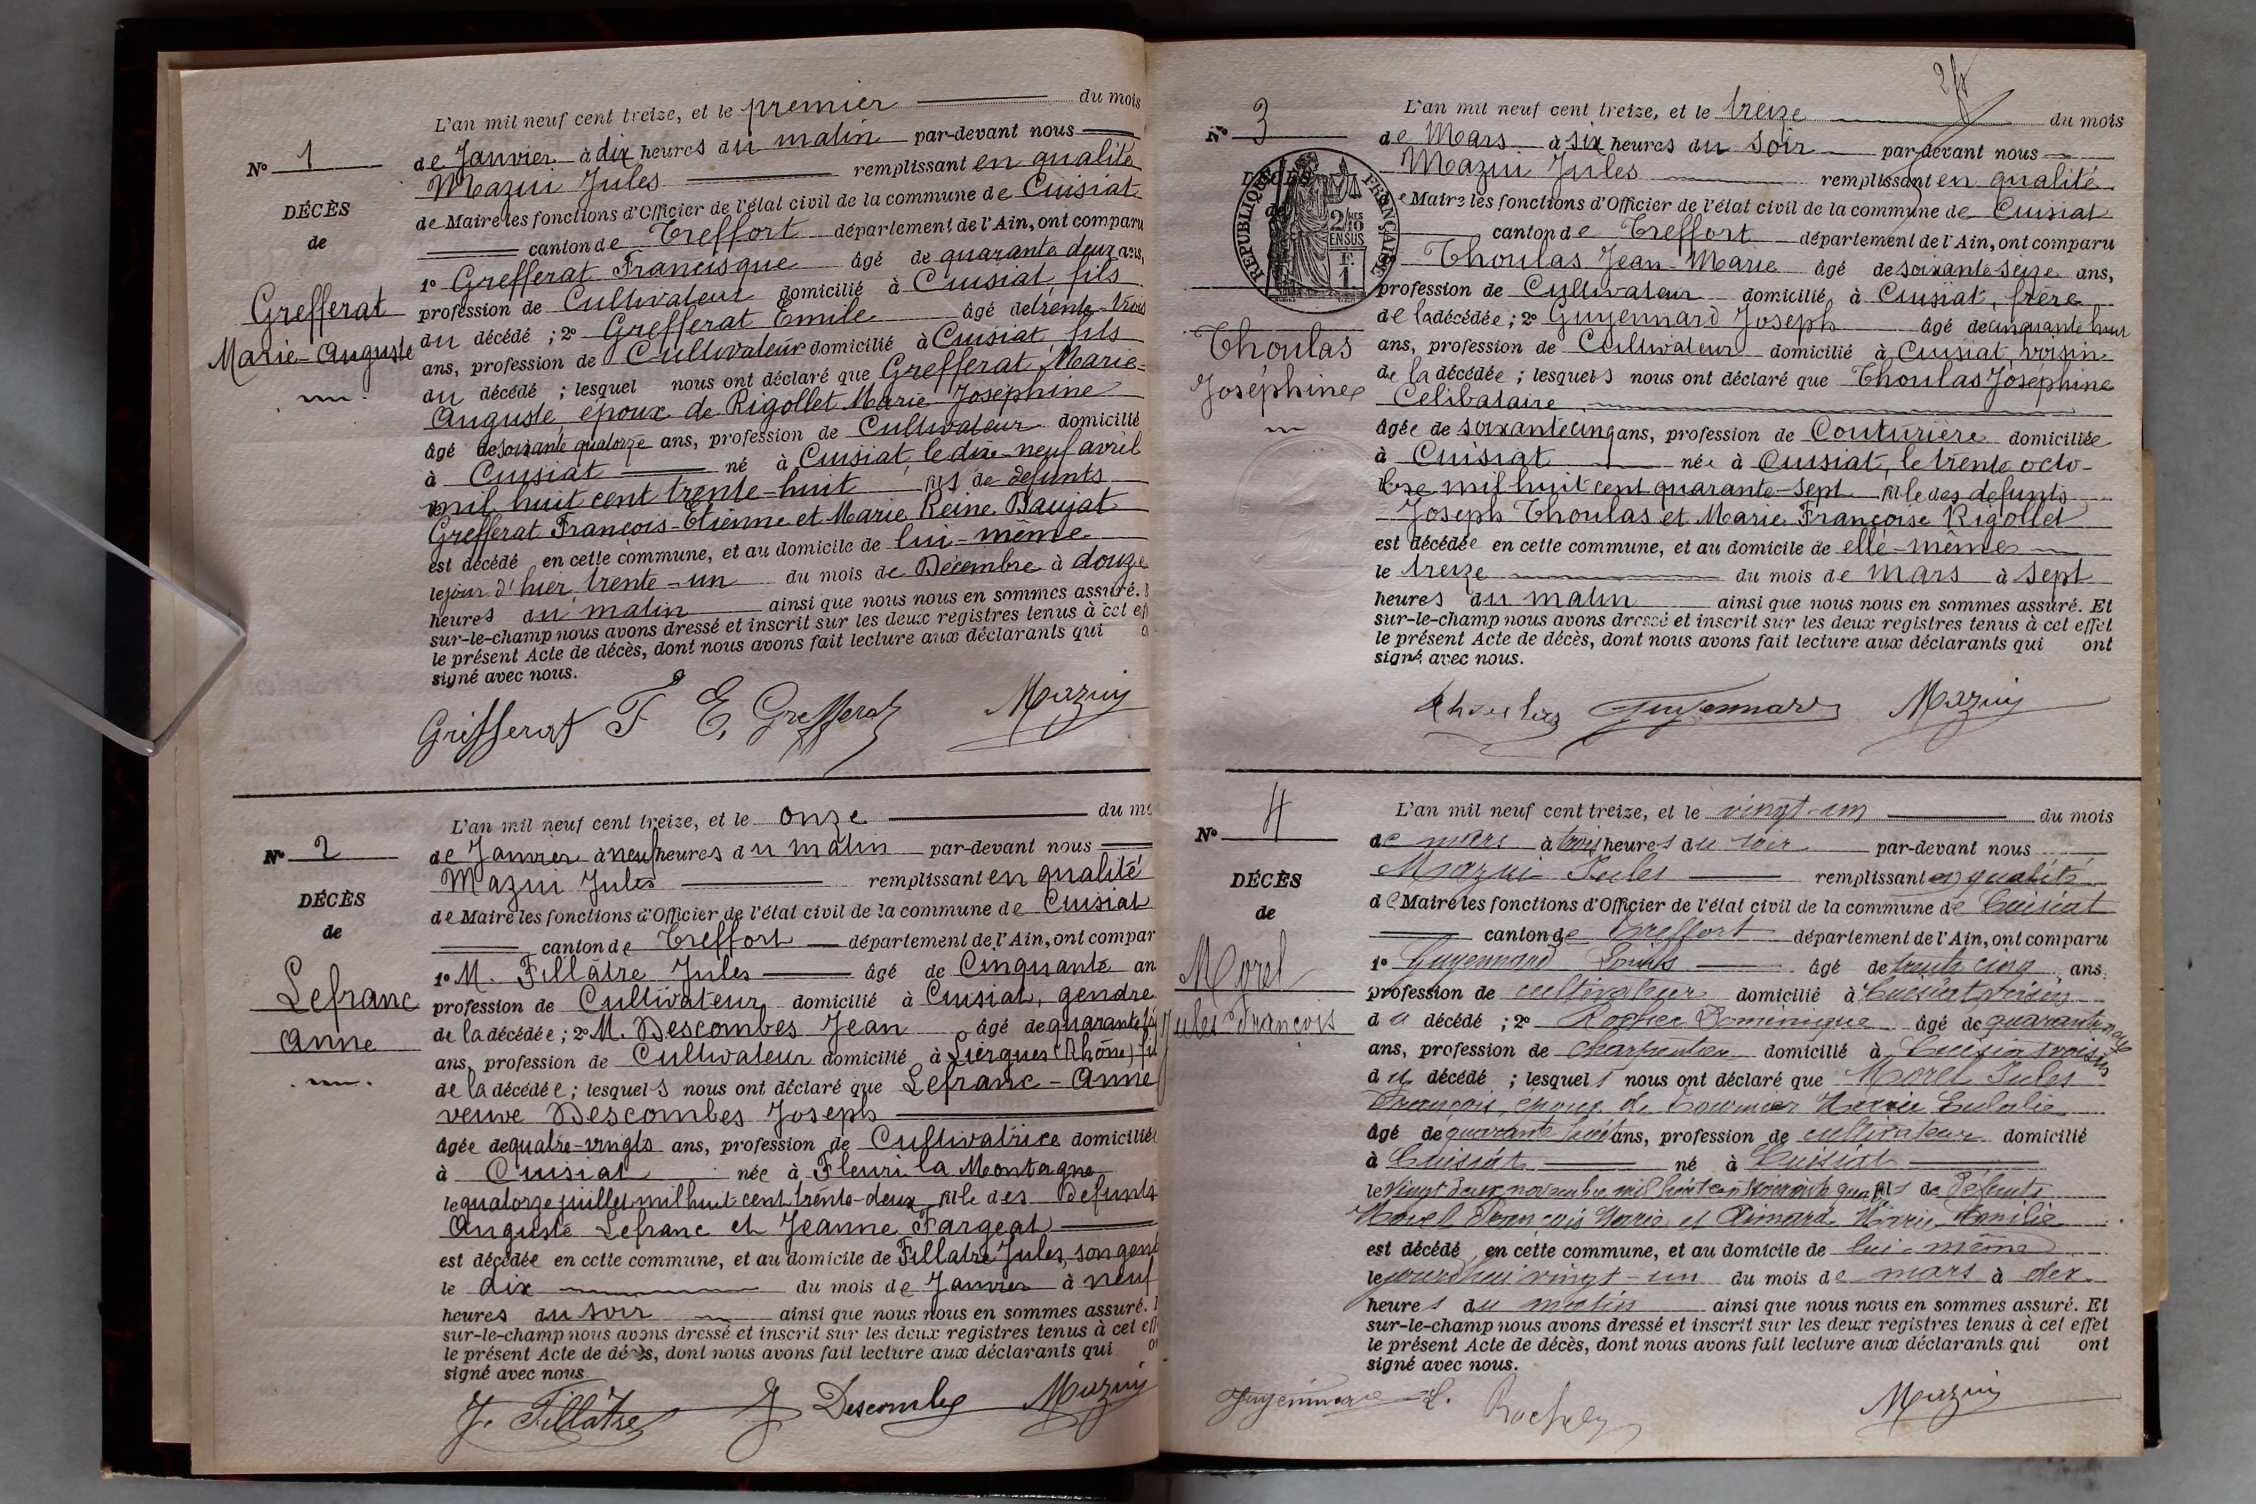 N° 1
DÉCÈS
de
Grefferat
Marie-Auguste
L'an mil neuf cent treize, et le premier du mois
de Janvier à dix heures du matin par-devant nous
Mazui Jules remplissant en qualité
de Maire les fonctions d'Officier de l'état civil de la commune de Cuisiat
canton de Treffort département de l'Ain, ont comparu
1° Grefferat Francisque âgé de quarante deux ans,
profession de Cultivateur domicilié à Cuisiat fils
du décédé ; 2° Grefferat Emile âgé de trente-trois
ans, profession de Cultivateur domicilié à Cuisiat, fils
du décédé ; lesquel nous ont déclaré que Grefferat Marie-
Auguste, époux de Rigollet Marie Joséphine
âgé de soixante quatorze ans, profession de Cultivateur domicilié
à Cuisiat né à Cuisiat, le dix-neuf avril
mil huit cent trente-huit fils de défunts
Grefferat François-Etienne et Marie Reine Baujat
est décédé en cette commune, et au domicile de lui-même
le jour d'hier trente-un du mois de Décembre à douze
heures du matin ainsi que nous nous en sommes assuré.
sur-le-champ nous avons dressé et inscrit sur les deux registres tenus à cet ef
le présent Acte de décès, dont nous avons fait lecture aux déclarants qui o
signé avec nous.
Grefferat F E, Grefferat Mazuy
N° 2
DÉCÈS
de
Lefranc
Anne
L'an mil neuf cent treize, et le onze du mo
de Janvier à neuf heures du matin par-devant nous
Mazui Jules remplissant en qualité
de Maire les fonctions d'Officier de l'état civil de la commune de Cuisiat
canton de Treffort département de l'Ain, ont compar
1° M. Fillâtre Jules âgé de Cinquante an
profession de Cultivateur domicilié à Cuisiat, gendre
de la décédée ; 2° M. Descombes Jean âgé de quarante
ans, profession de Cultivateur domicilié à Liergues (Rhône) fil
de la décédée ; lesquels nous ont déclaré que Lefranc-Anne
veuve Descombes Joseph
âgée de quatre-vingts ans, profession de Cultivatrice domicilié
à Cuisiat née à Fleuri la Montagne
le quatorze juillet mil huit cent trente-deux fille des Défunts
Auguste Lefranc et Jeanne Fargeat
est décédée en cette commune, et au domicile de Fillatre Jules, son gend
le dix du mois de Janvier à neuf
heures du soir ainsi que nous nous en sommes assuré.
sur-le-champ nous avons dressé et inscrit sur les deux registres tenus à cet eff
le présent Acte de décès, dont nous avons fait lecture aux déclarants qui o
signé avec nous
J. Fillâtre J Descombes Mazuy
N° 3
DÉCÈS
de
RÉPUBLIQUE FRANÇAISE
2/10 EN SUS
F. 1
Thoulas
Joséphine
L'an mil neuf cent treize, et le treize du mois
de Mars à six heures du soir par-devant nous
Mazui Jules remplissant en qualité
e Maire les fonctions d'Officier de l'état civil de la commune de Cuisiat
canton de Treffort département de l'Ain, ont comparu
Thoulas Jean-Marie âgé de soixante-seize ans,
profession de Cultivateur domicilié à Cuisiat, frère
de la décédée ; 2° Guyennard Joseph âgé de cinquante huit
ans, profession de Cultivateur domicilié à Cuisiat, voisin
de la décédée ; lesquels nous ont déclaré que Thoulas Joséphine
Celibataire
âgée de soixante cinq ans, profession de Couturière domiciliée
à Cuisiat née à Cuisiat, le trente octo-
bre mil huit cent quarante-sept fille des défunts
Joseph Thoulas et Marie Françoise Rigollet
est décédée en cette commune, et au domicile de elle-même
le treize du mois de mars à sept
heures du matin ainsi que nous nous en sommes assuré. Et
sur-le-champ nous avons dressé et inscrit sur les deux registres tenus à cet effet
le présent Acte de décès, dont nous avons fait lecture aux déclarants qui ont
signé avec nous.
Thoulas Guyennard Mazuy
N° 4
DÉCÈS
de
Morel
Jules François
L'an mil neuf cent treize, et le vingt-un du mois
de mars à trois heures du soir par-devant nous
Mazui Jules remplissant en qualité
de Maire les fonctions d'Officier de l'état civil de la commune de Cuisiat
canton de Treffort département de l'Ain, ont comparu
1° Guyennard Louis âgé de trente cinq ans,
profession de cultivateur domicilié à Cuisiat voisin
du décédé ; 2° Dominique âgé de quarante neuf
ans, profession de charpentier domicilié à Cuisiat voisin
du décédé ; lesquels nous ont déclaré que Morel Jules
François, époux de Tournier Marie Eulalie
âgé de quarante huit ans, profession de cultivateur domicilié
à Cuisiat né à Cuisiat
le vingt deux novembre mil huit cent soixante quatre fils de Défunts
Morel François Marie et Pimard Marie
est décédé en cette commune, et au domicile de lui-même
le jourd'hui vingt-un du mois de mars à dix
heures du matin ainsi que nous nous en sommes assuré. Et
sur-le-champ nous avons dressé et inscrit sur les deux registres tenus à cet effet
le présent Acte de décès, dont nous avons fait lecture aux déclarants qui ont
signé avec nous.
Guyennard L. Mazuy